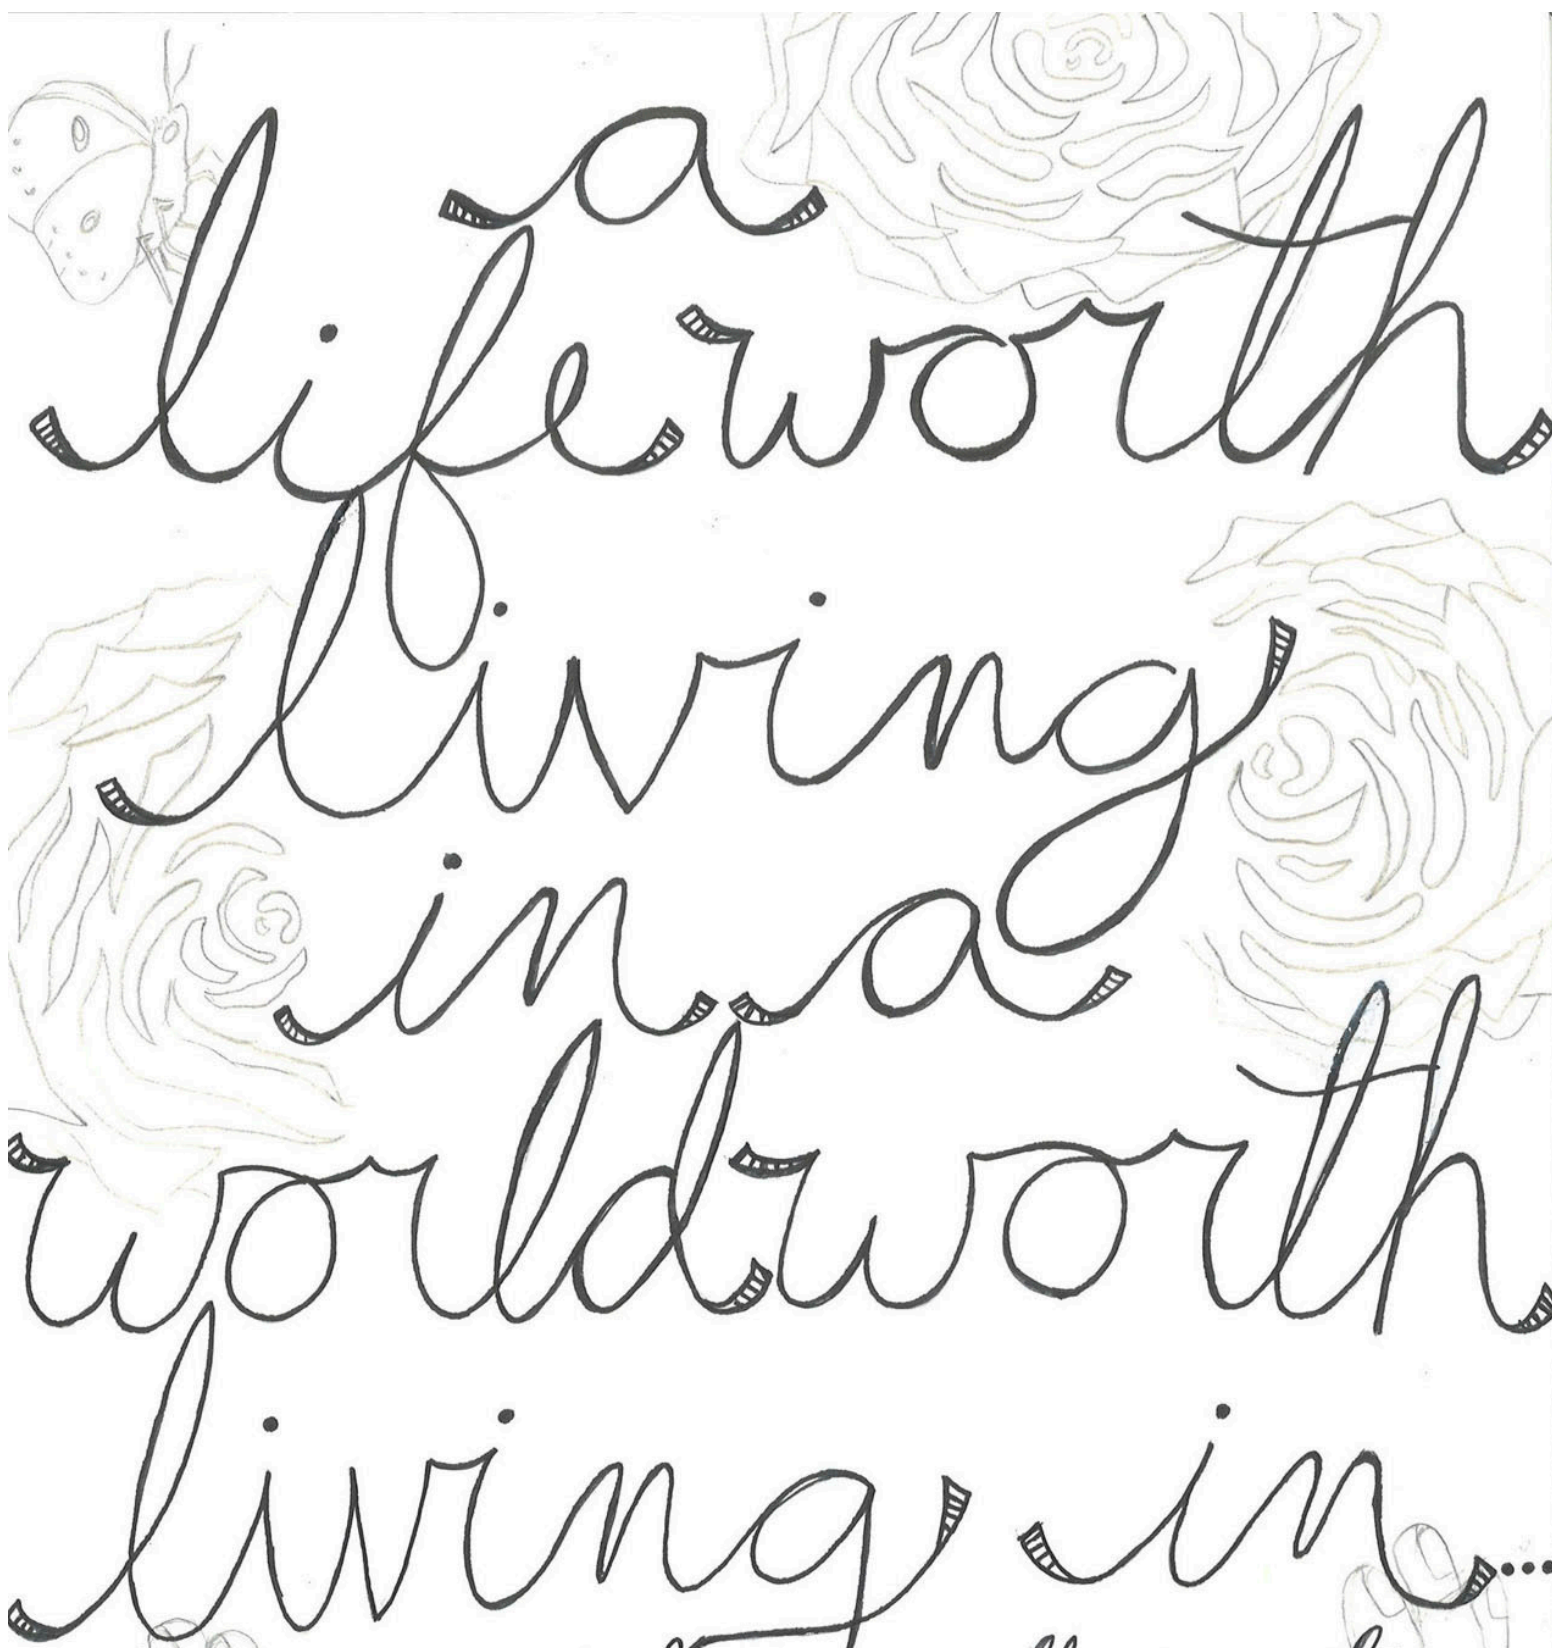 a
life worth
living
in a
world worth
living in...